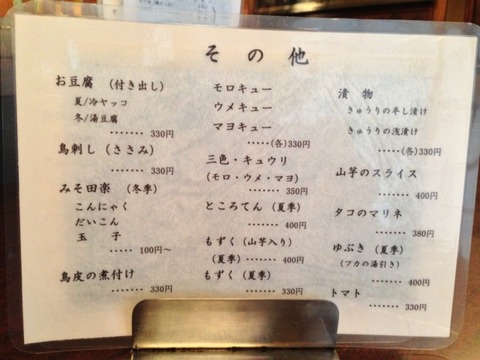 その他
お豆腐 (付き出し)
夏/冷ヤッコ
冬/湯豆腐
・・・・・・・ 330円
鳥刺し (ささみ)
・・・・・・・ 330円
みそ田楽 (冬季)
こんにゃく
だいこん
玉子
・・・・・ 100円〜
鳥皮の煮付け
・・・・・・・ 330円
モロキュー
ウメキュー
マヨキュー
・・・・・(各)330円
三色・キュウリ
(モロ・ウメ・マヨ)
・・・・・・ 350円
ところてん (夏季)
・・・・・・・ 400円
もずく (山芋入り)
(夏季) ・・・・・ 400円
もずく (夏季)
・・・・・・・ 330円
漬物
きゅうりの辛し漬け
きゅうりの浅漬け
・・・・・(各)330円
山芋のスライス
・・・・・・・ 400円
タコのマリネ
・・・・・・・ 380円
ゆぶき (夏季)
(フカの湯引き)
・・・・・・・ 400円
トマト
・・・・・・・ 330円